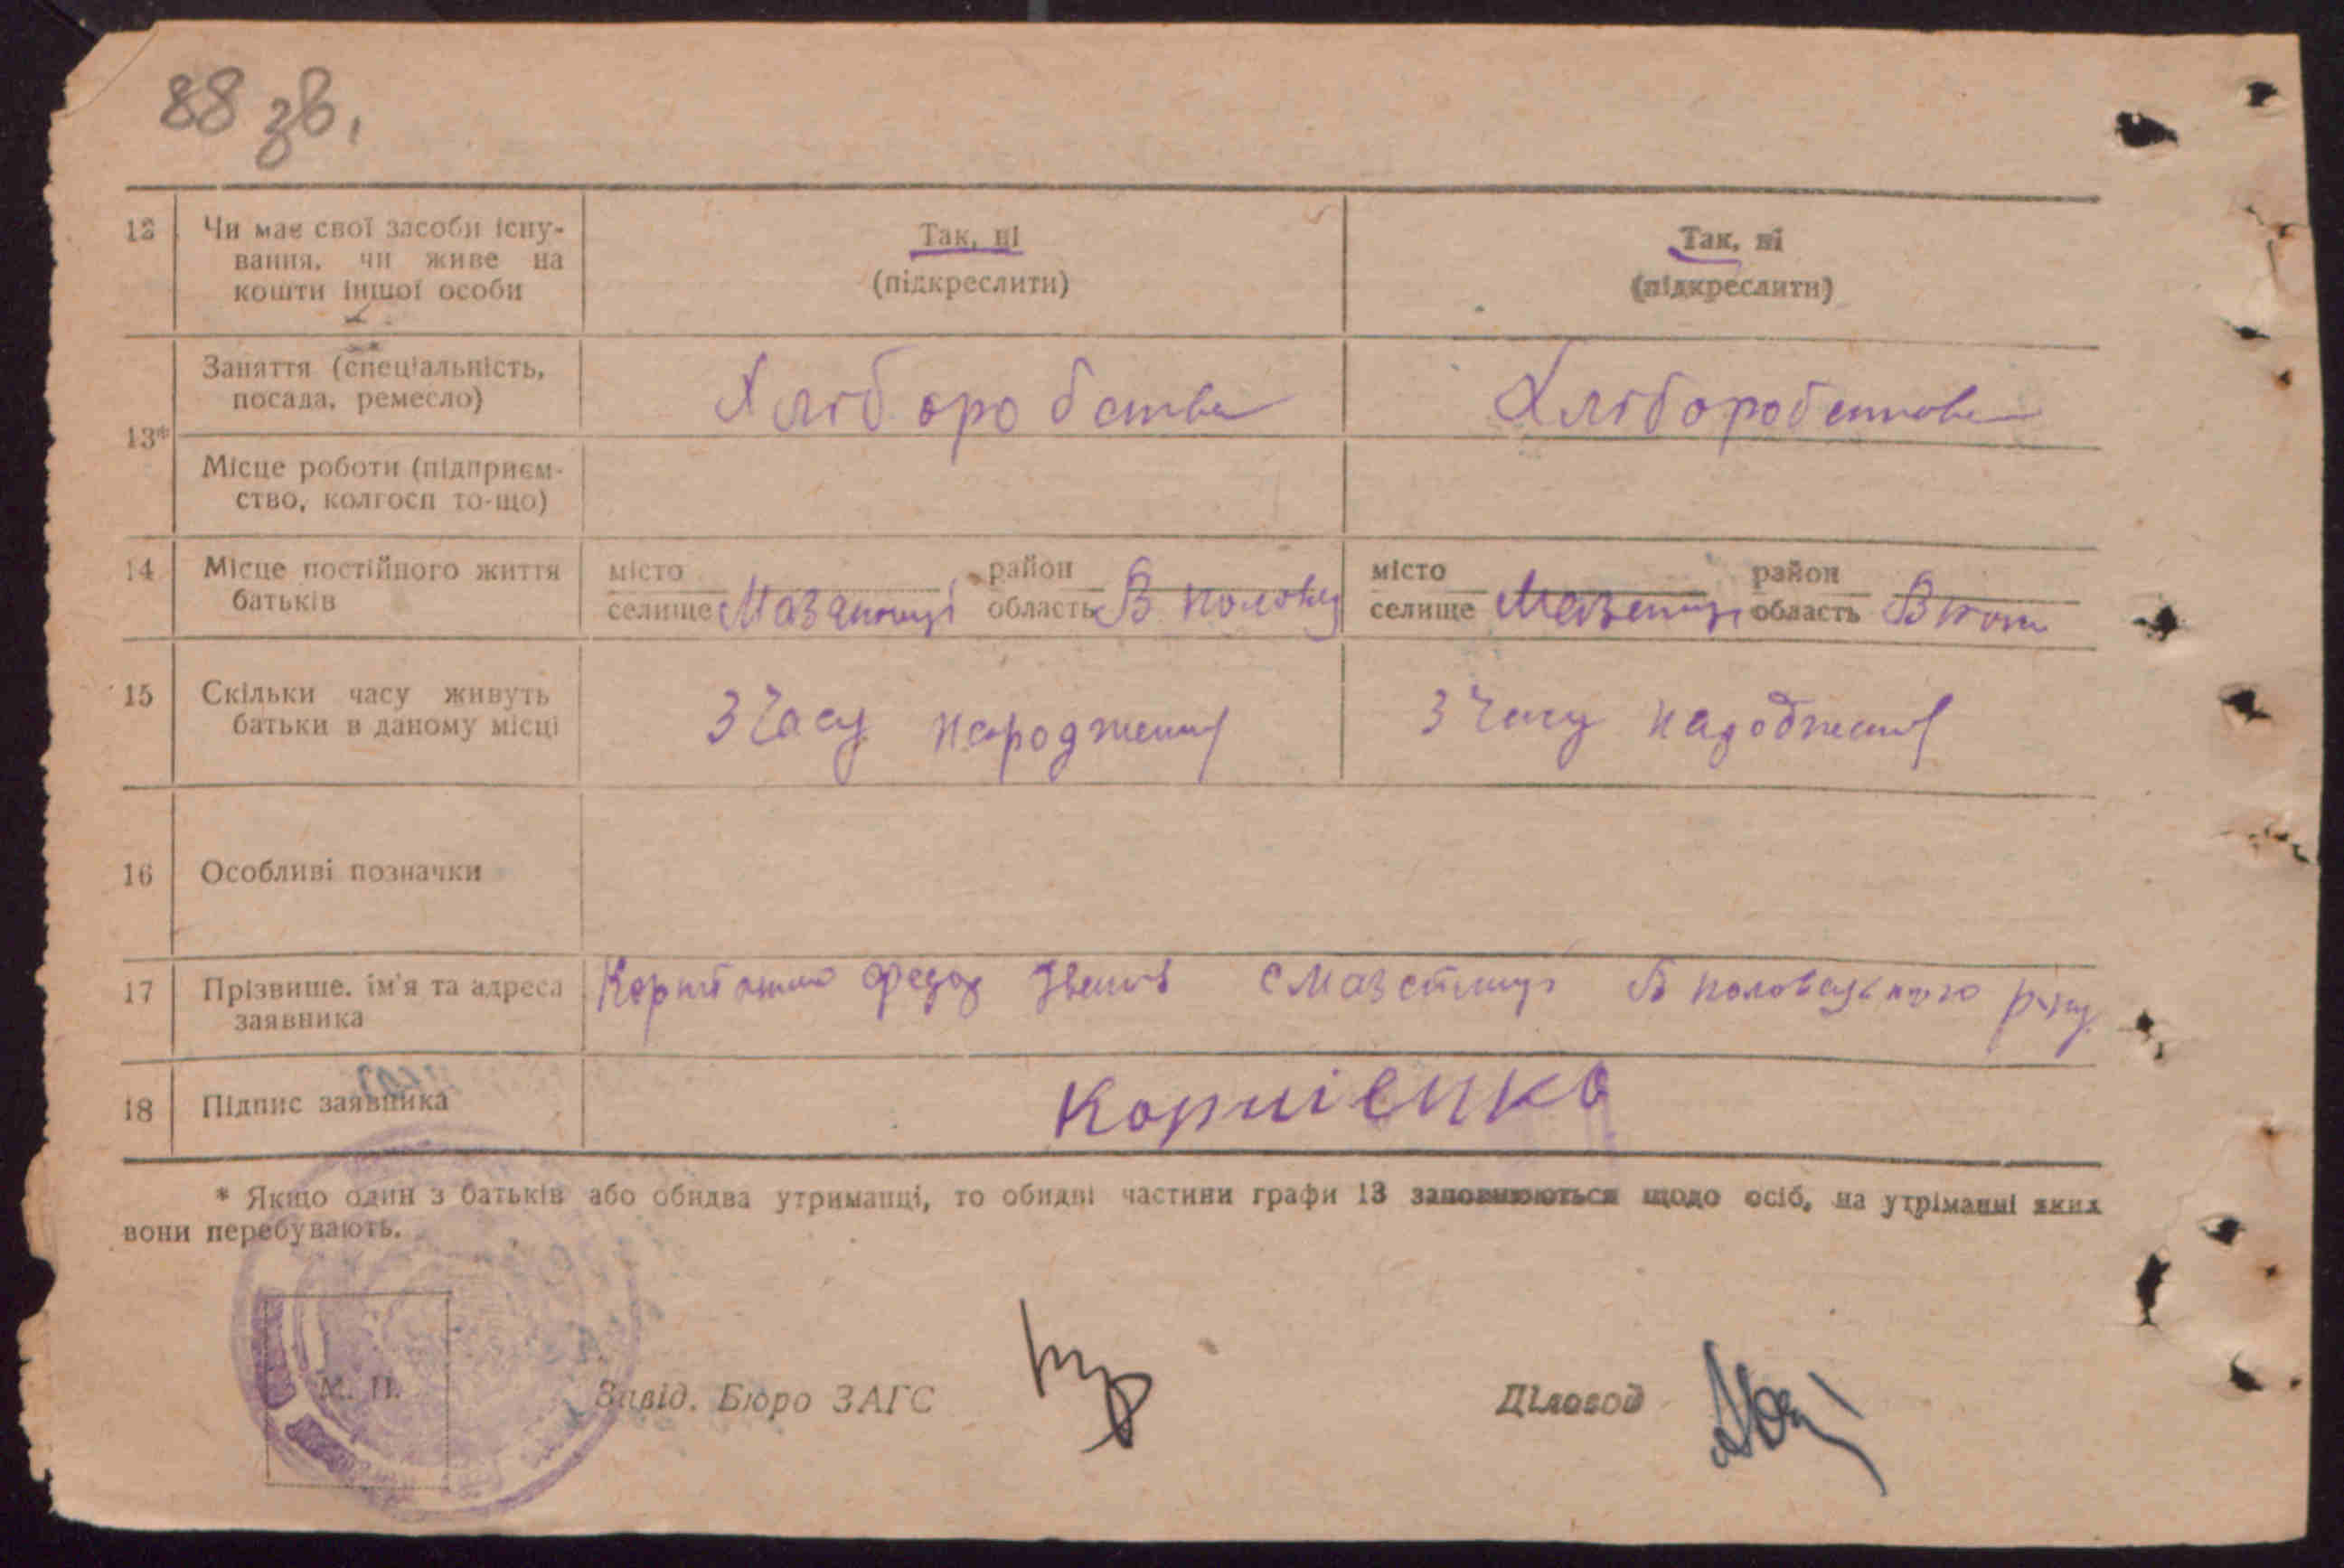 88 зв.
12 Чи має свої засоби існу-
вання, чи живе на
кошти іншої особи
Так, ні
(підкреслити)
Так, ні
(підкреслити)
13*
Заняття (спеціальність,
посада, ремесло)
Хліборобства
Хліборобства
Місце роботи (підприєм-
ство, колгосп то-що)
14 Місце постійного життя
батьків
місто
селище
район
область
місто
селище
район
область
15 Скільки часу живуть
батьки в даному місці
З часу народження
З часу народження
16 Особливі позначки
17 Прізвище, ім'я та адреса
заявника
Федор
18 Підпис заявника
Корнієнко
* Якщо один з батьків або обидва утриманці, то обидві частини графи 13 заповнюються щодо осіб, на утріманні яких
вони перебувають.
М. П.
Завід. Бюро ЗАГС
Діловод